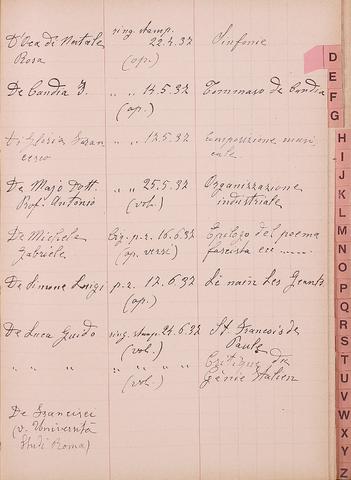 ring. stamp.
D'Oca di Nortale 22.4.32 Sinfonie
Rosa (op.)
De Candia I. " " 14.5.32 Tommaso de Candia
(op.)
Di Gloria Fran " " 17.5.32 Composizione musi
cesco cale
De Majo Dott. " " 25.5.32 Organizzazione
Prof. Antonio (vol.) industriale
De Michele p.r. 16.6.32 Epilogo del poema
Gabriele (op. versi) fascista ecc ......
De Simone Luigi p.r. 17.6.32 Le nain Les Geants
(op.)
De Luca Guido ring. stamp. 24.6.32 St. François de
(vol.) Paule
" " " " " Critique du
(vol.) Génie Italien
De Francisci
(v. Università
Studi Roma)
D
E
F
G
H
I
J
K
L
M
N
O
P
Q
R
S
T
U
V
W
X
Y
Z